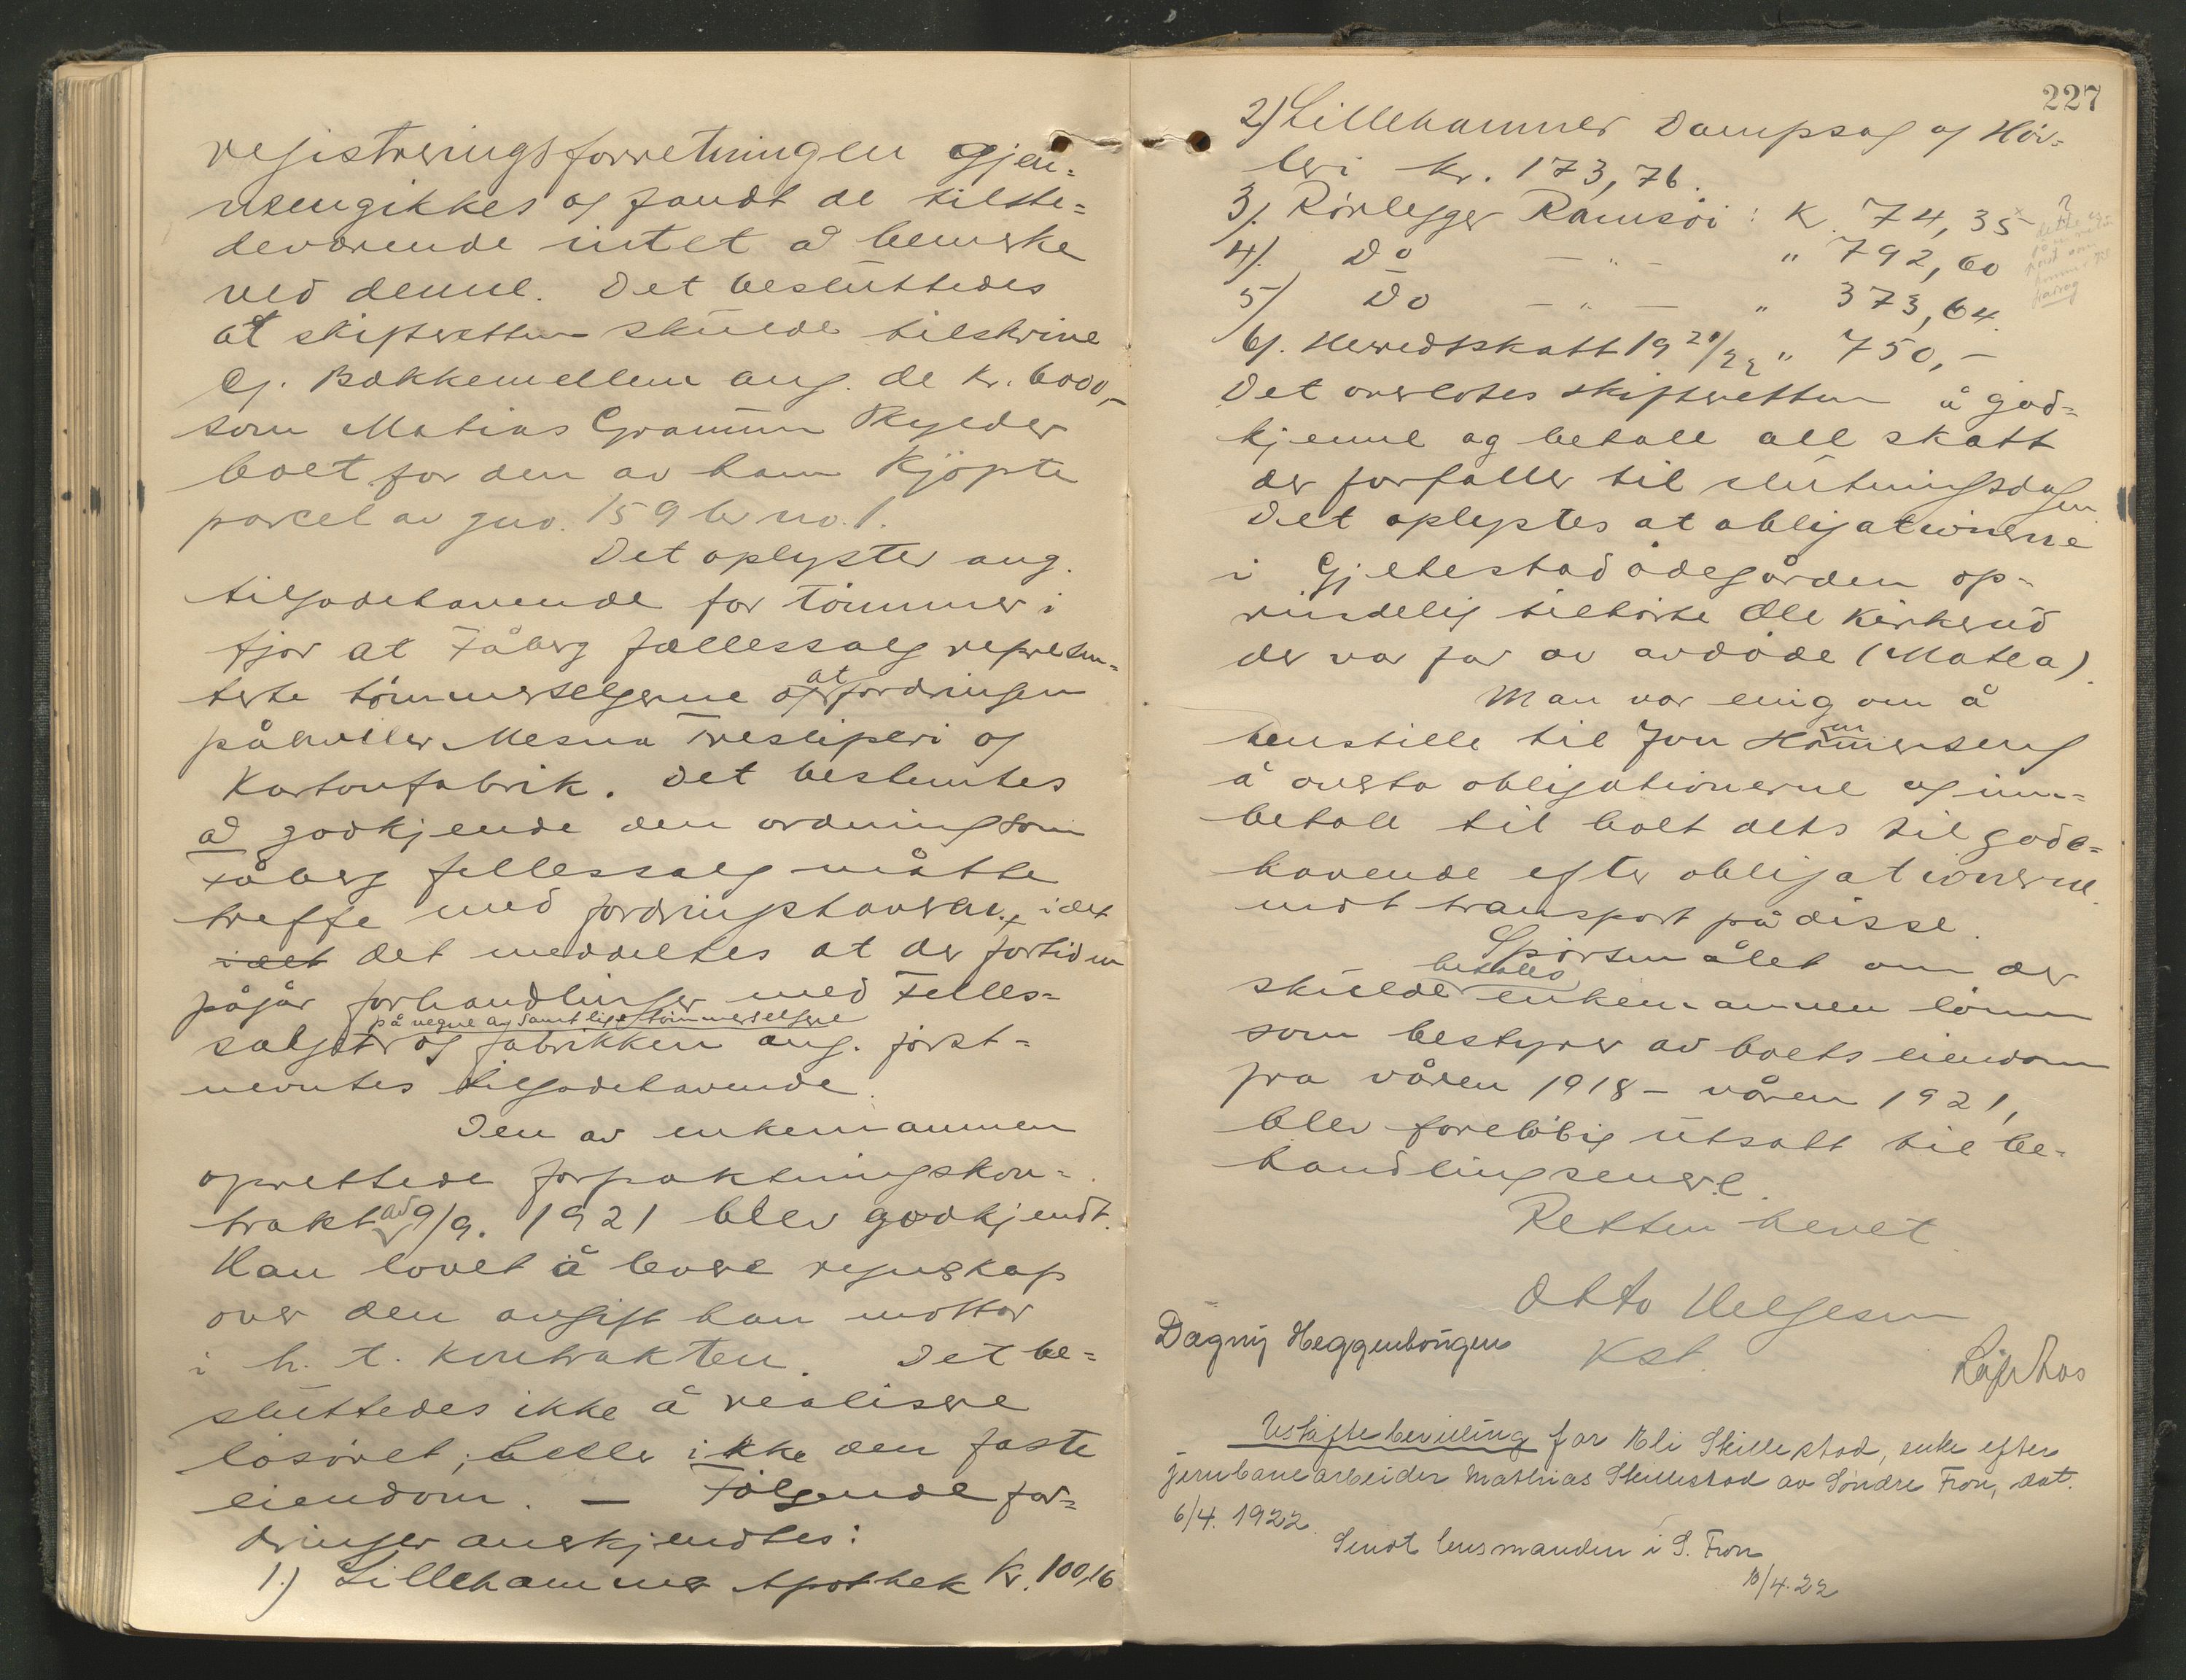 registreringsforretningen gjen-
nemgikkes og fandt de tilste-
deværende intet å bemerke
ved denne. Det besluttedes
at skifteretten skulde tilskrive
Gj. Bakkemellem ang. de kr. 6000,-
som Matias Gramm skylder
boet for den av ham kjöpte
parcel av gno. 159 br no. 1.
Det oplystes ang.
tilgodehavende for tömmer i
fjor at Fåberg fællessalg represen-
terte tömmerselgerne at fordringen
påhviler Mesna Træsliperi og
Kartonfabrik. Det bestemtes
å godkjende den ordning som
Fåberg fellessalg måtte
treffe med fordringshaveren, idet
idet det meddeltes at der fortiden
pågår forhandlinger med Felles-
på vegne av samtlige tömmerselgere
salget og fabrikken ang. först-
nevntes tilgodehavende.
Den av enkemannen
oprettede forpaktningskon-
trakt av 9/9. 1921 blev godkjendt.
Han lovet å levere regnskap
over den avgift han mottar
i h. t. kontrakten. Det be-
sluttedes ikke å realisere
lösöret; heller ikke den faste
eiendom. — Fölgende for-
dringer anerkjendtes:
1.) Lillehammer Apothek kr. 100,16
227
2) Lillehammer Dampsag og Höv-
leri kr. 173,76.
3). Rörlegger Ramsöi: K. 74,35
4). Do — " — " 792,60
5) Do — " — " 373,64.
6). Herredskatt 1921/22 " 750,-
Det overlotes skifteretten å god-
kjenne og betale all skatt
der forfaller til slutningsdagen
Det oplystes at obligationerne
i Gjeltestadödegården op-
rindelig tilhörte Ole Kirkerud
der var far av avdöde (Matea).
Man var enig om å
henstille til Jon Hammerseng
å overta obligationerne og inn-
betale til boet dets tilgode-
havende efter obligationerne
mot transport på disse.
Spörsmålet om der
betales
skulde enkemannen lönn
som bestyrer av boets eiendom
fra våren 1918 - våren 1921,
blev forelöbig utsatt til be-
handling senere.
Retten hevet.
Otto Helgesen
Kst.
Dagny Heggenhougen
Uskiftebevilling for Eli Skillestad, enke efter
jernbanearbeider Mathias Skillestad av Söndre Fron, dat.
6/4. 1922.
Sendt lensmanden i S. Fron
10/4.22